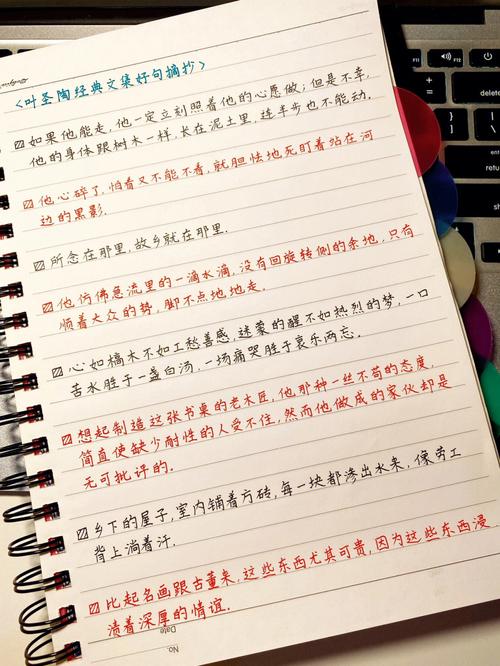 <叶圣陶经典文集好句摘抄>
如果他能走，他一定立刻照着他的心愿做；但是不幸，
他的身体跟树木一样，长在泥土里，连半步也不能动。
他心碎了，怕看又不能不看，就胆怯地死盯着站在河
边的黑影.
所念在那里，故乡就在那里.
他仿佛急流里的一滴水滴，没有回旋转侧的余地，只有
顺着大众的势，脚不点地地走.
心如槁木不如工愁善感，迷蒙的醒不如热烈的梦，一口
苦水胜于一盏白汤，一场痛哭胜于哀乐两忘.
想起制造这张书桌的老木匠，他那种一丝不苟的态度，
简直使缺少耐性的人受不住，然而他做成的家伙却是
无可批评的.
乡下的屋子，室内铺着方砖，每一块都渗出水来，像劳工
背上淌着汗.
比起名画跟古董来，这些东西尤其可贵，因为这些东西浸
渍着深厚的情谊.
Date
No.
delete
return